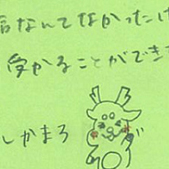 なんてなかったけ
受かることができ
しかまろ